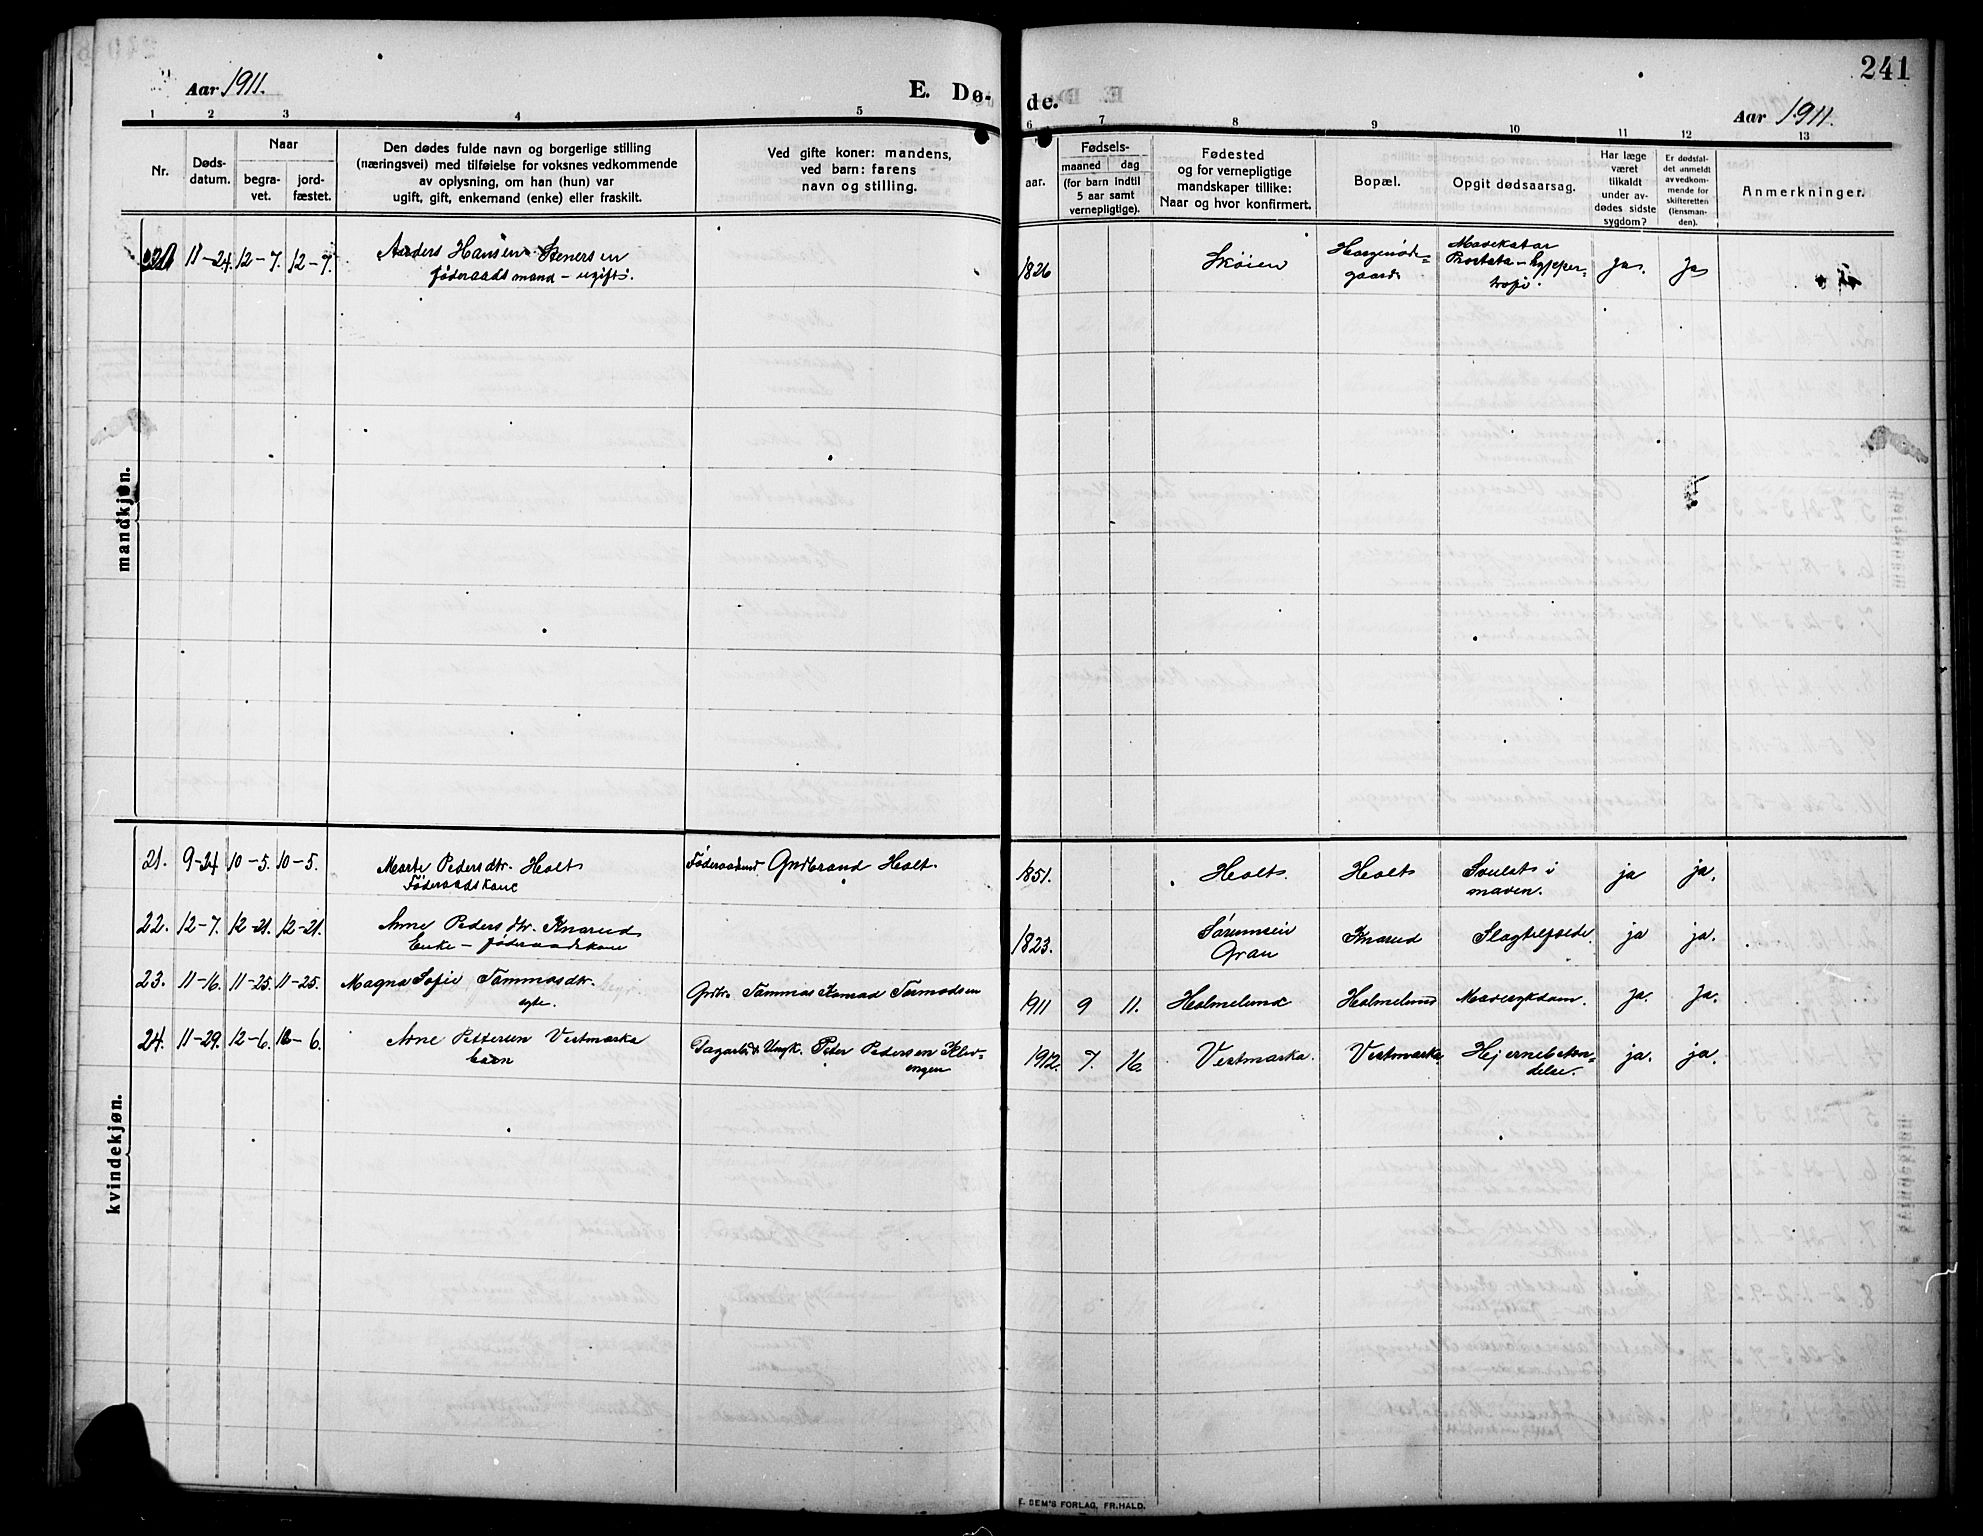 241
Aar 1911.
E. Dø-
de.
Aar 1911.
1 2 3 4 5 6 7 8 9 10 11 12 13
Nr.
Døds-
datum.
Naar
begra-
vet.
jord-
fæstet.
Den dødes fulde navn og borgerlige stilling
(næringsvei) med tilføielse for voksnes vedkommende
av oplysning, om han (hun) var
ugift, gift, enkemand (enke) eller fraskilt.
Ved gifte koner: mandens,
ved barn: farens
navn og stilling.
aar.
Fødsels-
maaned dag
(for barn indtil
5 aar samt
vernepligtige).
Fødested
og for vernepligtige
mandskaper tillike:
Naar og hvor konfirmert.
Bopæl.
Opgit dødsaarsag.
Har læge
været
tilkaldt
under av-
dødes sidste
sygdom?
Er dødsfal-
det anmeldt
av vedkom-
mende for
skifteretten
(lensman-
den).
Anmerkninger.
mandkjøn.
11-24. 12-7. 12-7. Anders Hansen Stenersen
føderaadsmand - ugift.
1826 Skøien
Mavekatar
Prostata-hypper-
trofi.
ja. ja
kvindekjøn.
21. 9-24 10-5. 10-5. Marte Pedersdtr. Holt
Føderaadskone
Føderaadsmd. Gudbrand Holt.
1851. Holt. Holt
Svulst i
maven.
ja ja.
22. 12-7. 12-21. 12-21. Anne Pedersdtr. Knarud
Enke - føderaadskone
1823.
Sørumsein
Gran
Knarud Slagtilfælde. ja ja.
23. 11-16. 11-25. 11-25. Magna Sofie Tommasdtr.
egte.
Grdbr. Tommas Konrad Tormodsen
1911 9 11. Holmelund Holmelund Mavesykdom. Ja. Ja.
24. 11-29. 12-6. 12-6. Arne Pettersen Vestmarka
barn
Dagarbd. Ungk. Peter Pedersen Klev-
engen
1912. 7. 16. Vestmarka. Vestmarka. Hjernebeten-
delse.
ja. ja.
E. SEM'S FORLAG, FR.HALD.